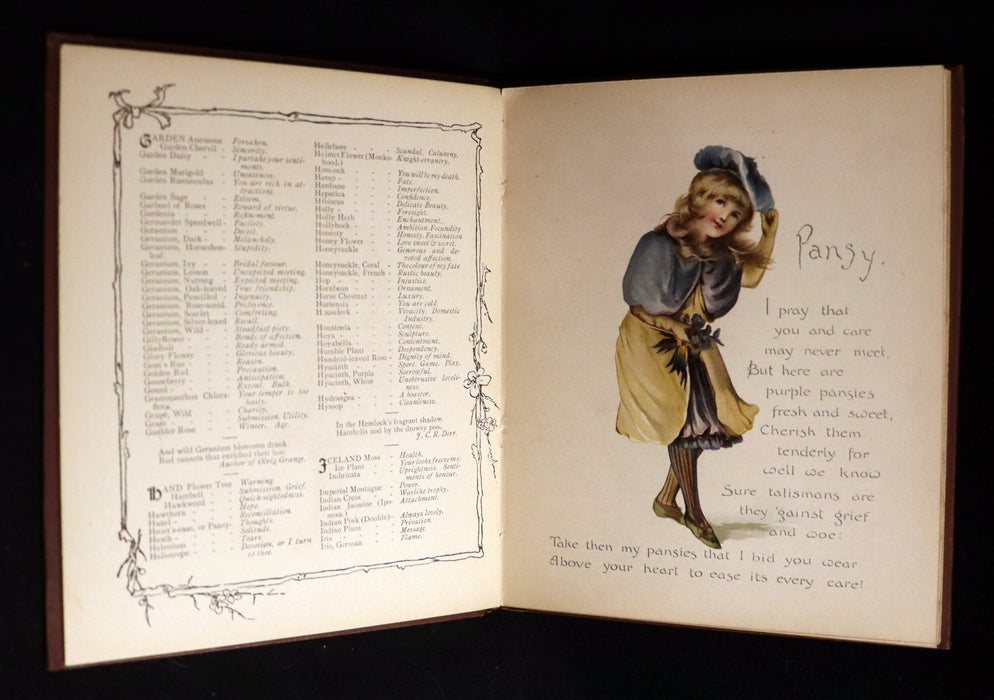 GARDEN Anemone Forsaken.
Garden Chervil - Sincerity.
Garden Daisy - - I partake your senti-
ments.
Garden Marigold - Uneasiness.
Garden Ranunculus - You are rich in at-
tractions.
Garden Sage - - Esteem.
Garland of Roses - Reward of virtue.
Gardenia - - Refinement.
Germander Speedwell- Facility.
Geranium - - Deceit.
Geranium, Dark - Melancholy.
Geranium, Horseshoe- Stupidity.
leaf.
Geranium, Ivy - - Bridal favour.
Geranium, Lemon - Unexpected meeting.
Geranium, Nutmeg - Expected meeting.
Geranium, Oak-leaved True friendship.
Geranium, Pencilled - Ingenuity.
Geranium, Rose-scntd. Preference.
Geranium, Scarlet - Comforting.
Geranium, Silver-leavd Recall.
Geranium, Wild - - Steadfast piety.
Gillyflower - - Bonds of affection.
Gladioli - - Ready armed.
Glory Flower - - Glorious beauty.
Goat's Rue - - Reason.
Golden Rod - - Precaution.
Gooseberry - - Anticipation.
Gourd - - Extent, Bulk.
Grammanthus Chlora- Your temper is too
flora. hasty.
Grape, Wild - - Charity.
Grass - - Submission. Utility.
Guelder Rose - - Winter, Age.
And wild Geranium blossoms drank
Red sunsets that enriched their hue.
Author of Olrig Grange.
HAND Flower Tree Warning.
Harebell - - Submission. Grief.
Hawkweed - - Quick-sightedness.
Hawthorn - - Hope.
Hazel - - Reconciliation.
Heart's-ease, or Pansy- Thoughts.
Heath - - Solitude.
Helenium - - Tears.
Heliotrope - - Devotion, or I turn
to thee.
Hellebore - - Scandal, Calumny.
Helmet Flower (Monks- Knight-errantry.
hood.)
Hemlock - - You will be my death.
Hemp - - Fate.
Henbane - - Imperfection.
Hepatica - - Confidence.
Hibiscus - - Delicate Beauty.
Holly - - Foresight.
Holly Herb - - Enchantment.
Hollyhock - - Ambition. Fecundity
Honesty - - Honesty. Fascination
Honey Flower - - Love sweet & secret.
Honeysuckle - - Generous and de-
voted affection.
Honeysuckle, Coral - The colour of my fate
Honeysuckle, French - Rustic beauty.
Hop - - Injustice.
Hornbean - - Ornament.
Horse Chestnut - - Luxury.
Hortensia - - You are cold.
Houseleek - - Vivacity. Domestic
Industry.
Houstonia - - Content.
Hoya - - Sculpture.
Hoyabella - - Contentment.
Humble Plant - - Despondency.
Hundred-leaved Rose - Dignity of mind.
Hyacinth - - Sport. Game. Play.
Hyacinth, Purple - Sorrowful.
Hyacinth, White - Unobtrusive loveli-
ness.
Hydrangea - - A boaster.
Hyssop - - Cleanliness.
In the Hemlock's fragrant shadow.
Harebells nod by the drowsy pool.
J. C. R. Dorr.
ICELAND Moss - Health.
Ice Plant - - Your looks freeze me.
Imbricata - - Uprightness. Senti-
ments of honour.
Imperial Montague - Power.
Indian Cress - - Warlike trophy.
Indian Jasmine (Ipo- Attachment.
mœa.)
Indian Pink (Double)- Always lovely.
Indian Plum - - Privation.
Iris - - Message.
Iris, German - - Flame.
Pansy.
I pray that
you and care
may never meet,
But here are
purple pansies
fresh and sweet,
Cherish them
tenderly for
well we know
Sure talismans are
they 'gainst grief
and woe:
Take then my pansies that I bid you wear
Above your heart to ease its every care!